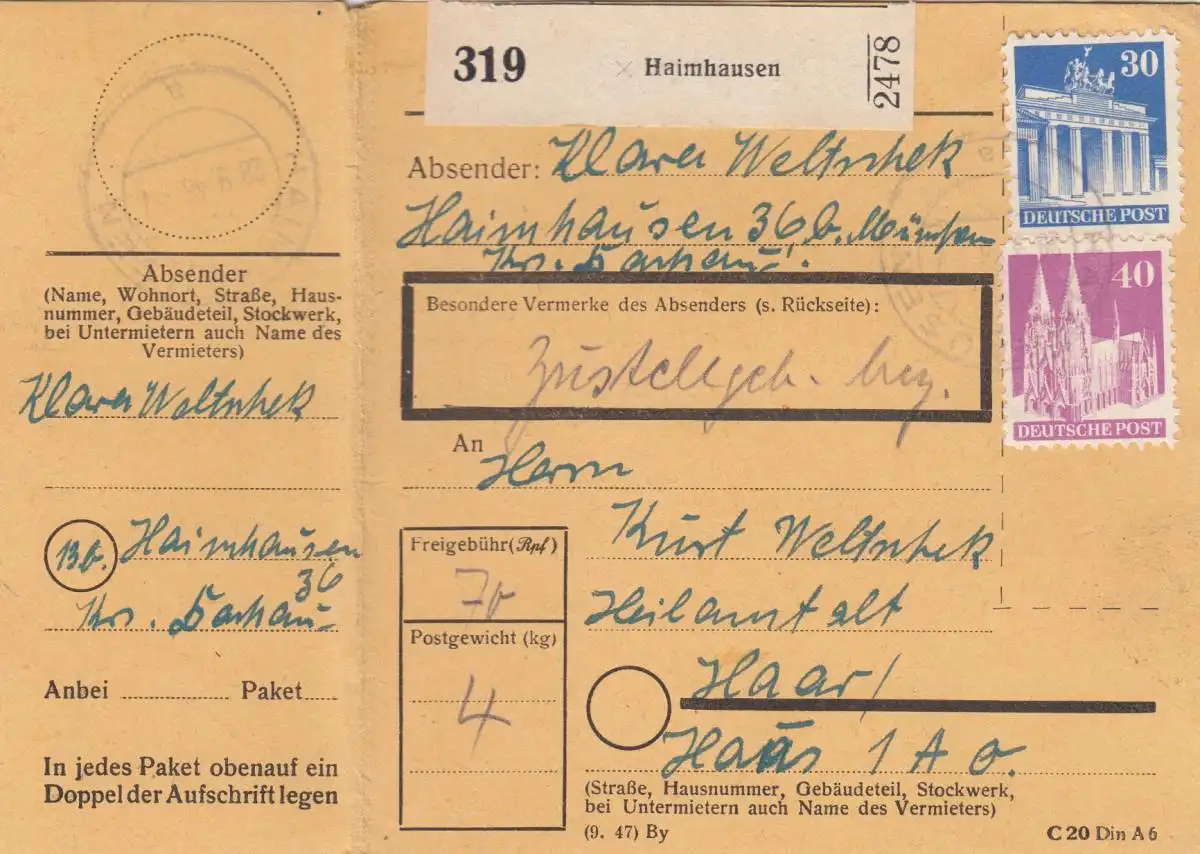 319 Haimhausen 2478
30
DEUTSCHE POST
40
DEUTSCHE POST
Absender: Klara Weltschek
Haimhausen 36, b. München
Krs. Dachau.
Besondere Vermerke des Absenders (s. Rückseite):
Zustellgeb. bez.
An Herrn
Kurt Weltschek
Heilanstalt
Haar/
Haus 1 A o.
(Straße, Hausnummer, Gebäudeteil, Stockwerk,
bei Untermietern auch Name des Vermieters)
Freigebühr (Rpf)
70
Postgewicht (kg)
4
(9. 47) By
C 20 Din A 6
Absender
(Name, Wohnort, Straße, Haus-
nummer, Gebäudeteil, Stockwerk,
bei Untermietern auch Name des
Vermieters)
Klara Weltschek
13b. Haimhausen
36
Krs. Dachau
Anbei Paket
In jedes Paket obenauf ein
Doppel der Aufschrift legen